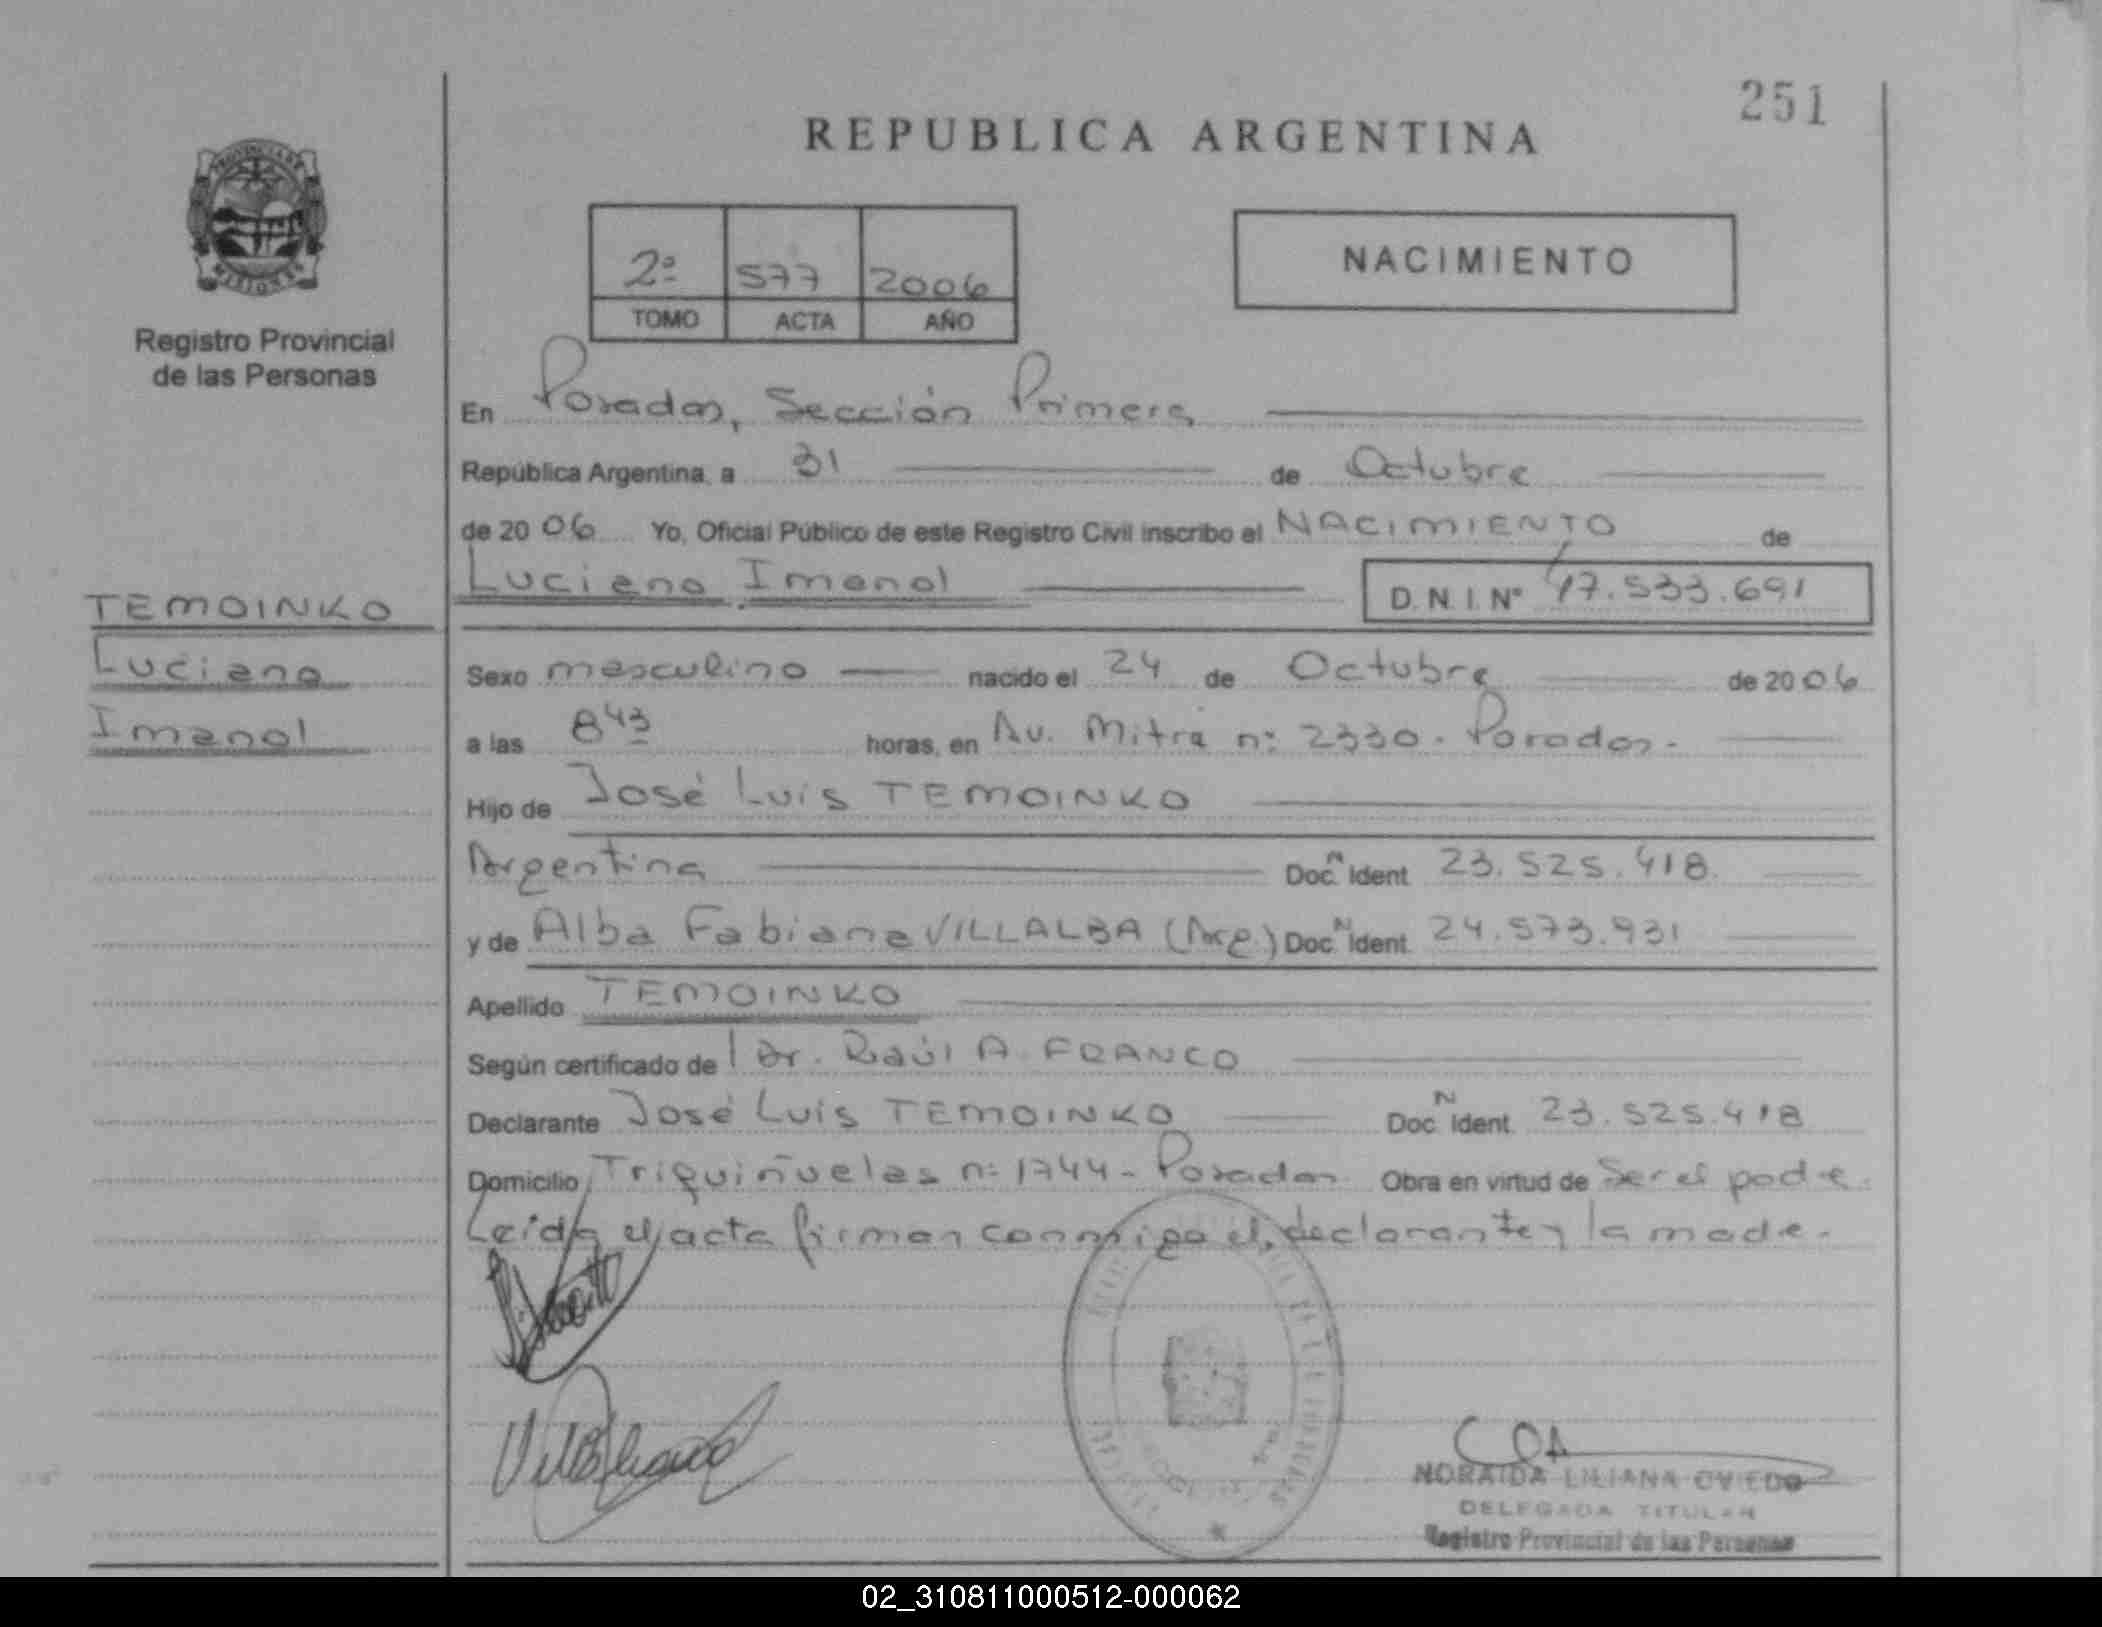 251
REPUBLICA ARGENTINA
PROVINCIA DE
MISIONES
Registro Provincial
de las Personas
2º 577 2006
TOMO ACTA AÑO
NACIMIENTO
En Posadas, Sección Primera
República Argentina, a 31 de Octubre
de 2006 Yo, Oficial Público de este Registro Civil inscribo el NACIMIENTO de
Luciano Imanol D.N.I. Nº 47.533.691
TEMOINKO
Luciano
Imanol
Sexo masculino nacido el 24 de Octubre de 2006
a las 8 43 horas, en Av. Mitre nº 2330. Posadas.
Hijo de José Luis TEMOINKO
Argentina Doc. N Ident. 23.525.418.
y de Alba Fabiana VILLALBA (Arg.) Doc. N Ident. 24.573.931
Apellido TEMOINKO
Según certificado de l Dr. Raúl A. FRANCO
Declarante José Luis TEMOINKO Doc. N Ident. 23.525.418
Domicilio Triquiñuelas nº 1744 - Posadas Obra en virtud de Ser el padre.
Leída el acta firman conmigo el declarante y la madre.
NORAIDA LILIANA OVIEDO
DELEGADA TITULAR
Registro Provincial de las Personas
02_310811000512-000062